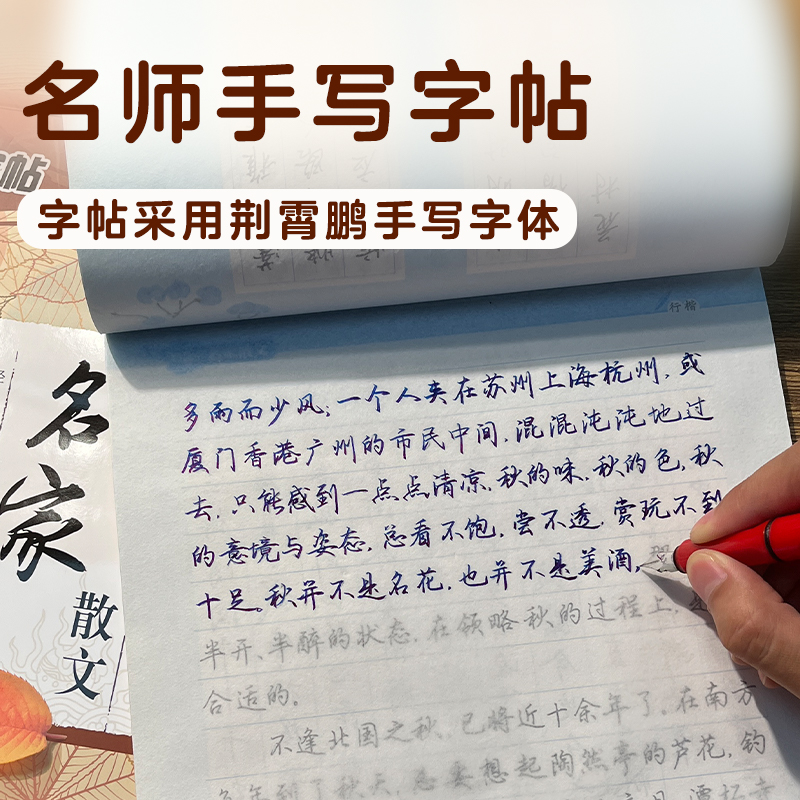 名师手写字帖
字帖采用荆霄鹏手写字体
帖
行楷
多雨而少风；一个人夹在苏州上海杭州，或
厦门香港广州的市民中间，混混沌沌地过
去，只能感到一点点清凉，秋的味，秋的色，秋
的意境与姿态，总看不饱，尝不透，赏玩不到
十足。秋并不是名花，也并不是美酒，
半开、半醉的状态，在领略秋的过程上，是
合适的。
不逢北国之秋，已将近十余年了。在南方
每年到了秋天，总要想起陶然亭的芦花，钓
名家
散文